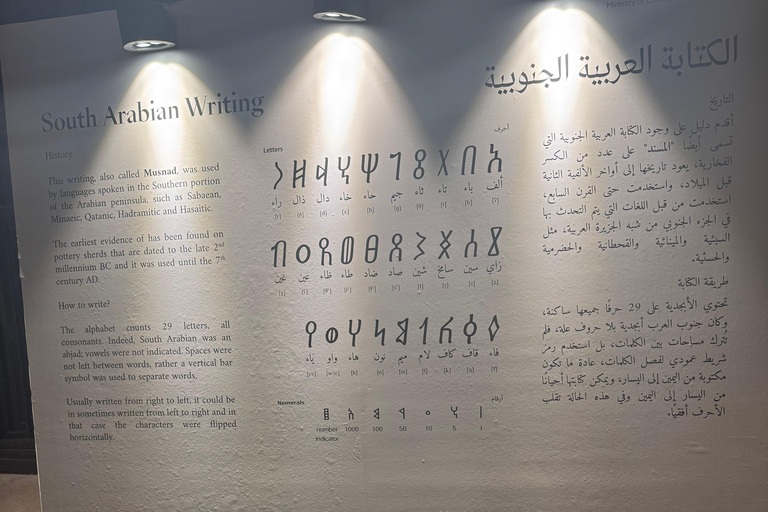 South Arabian Writing
History
This writing, also called Musnad, was used
by languages spoken in the Southern portion
of the Arabian peninsula, such as Sabaean,
Minaeic, Qatanic, Hadramitic and Hasaitic.
The earliest evidence of has been found on
pottery sherds that are dated to the late 2nd
millennium BC and it was used until the 7th
century AD.
How to write?
The alphabet counts 29 letters, all
consonants. Indeed, South Arabian was an
abjad; vowels were not indicated. Spaces were
not left between words, rather a vertical bar
symbol was used to separate words.
Usually written from right to left, it could be
in sometimes written from left to right and in
that case the characters were flipped
horizontally.
Letters
أحرف
𐩠
ألف باء تاء ثاء جيم حاء خاء دال ذال راء
زاي سين سامخ شين صاد ضاد طاء ظاء عين غين
فاء قاف كاف لام ميم نون هاء واو ياء
Numerals
أرقام
number 1000 100 50 10 5 1
indicator
الكتابة العربية الجنوبية
التاريخ
أقدم دليل على وجود الكتابة العربية الجنوبية التي
تسمى أيضًا "المسند" على عدد من الكسر
الفخارية، يعود تاريخها إلى أواخر الألفية الثانية
قبل الميلاد، واستخدمت حتى القرن السابع،
استخدمت من قبل اللغات التي يتم التحدث بها
في الجزء الجنوبي من شبه الجزيرة العربية، مثل
السبئية والمينائية والقحطانية والحضرمية
والحسئية.
طريقة الكتابة
تحتوي الأبجدية على 29 حرفًا جميعها ساكنة،
وكان جنوب العرب أبجدية بلا حروف علة، فلم
تُترك مسافات بين الكلمات، بل استخدم رمز
شريط عمودي لفصل الكلمات، عادة ما تكون
مكتوبة من اليمين إلى اليسار، ويمكن كتابتها أحيانًا
من اليسار إلى اليمين وفي هذه الحالة تقلب
الأحرف أفقيًا.